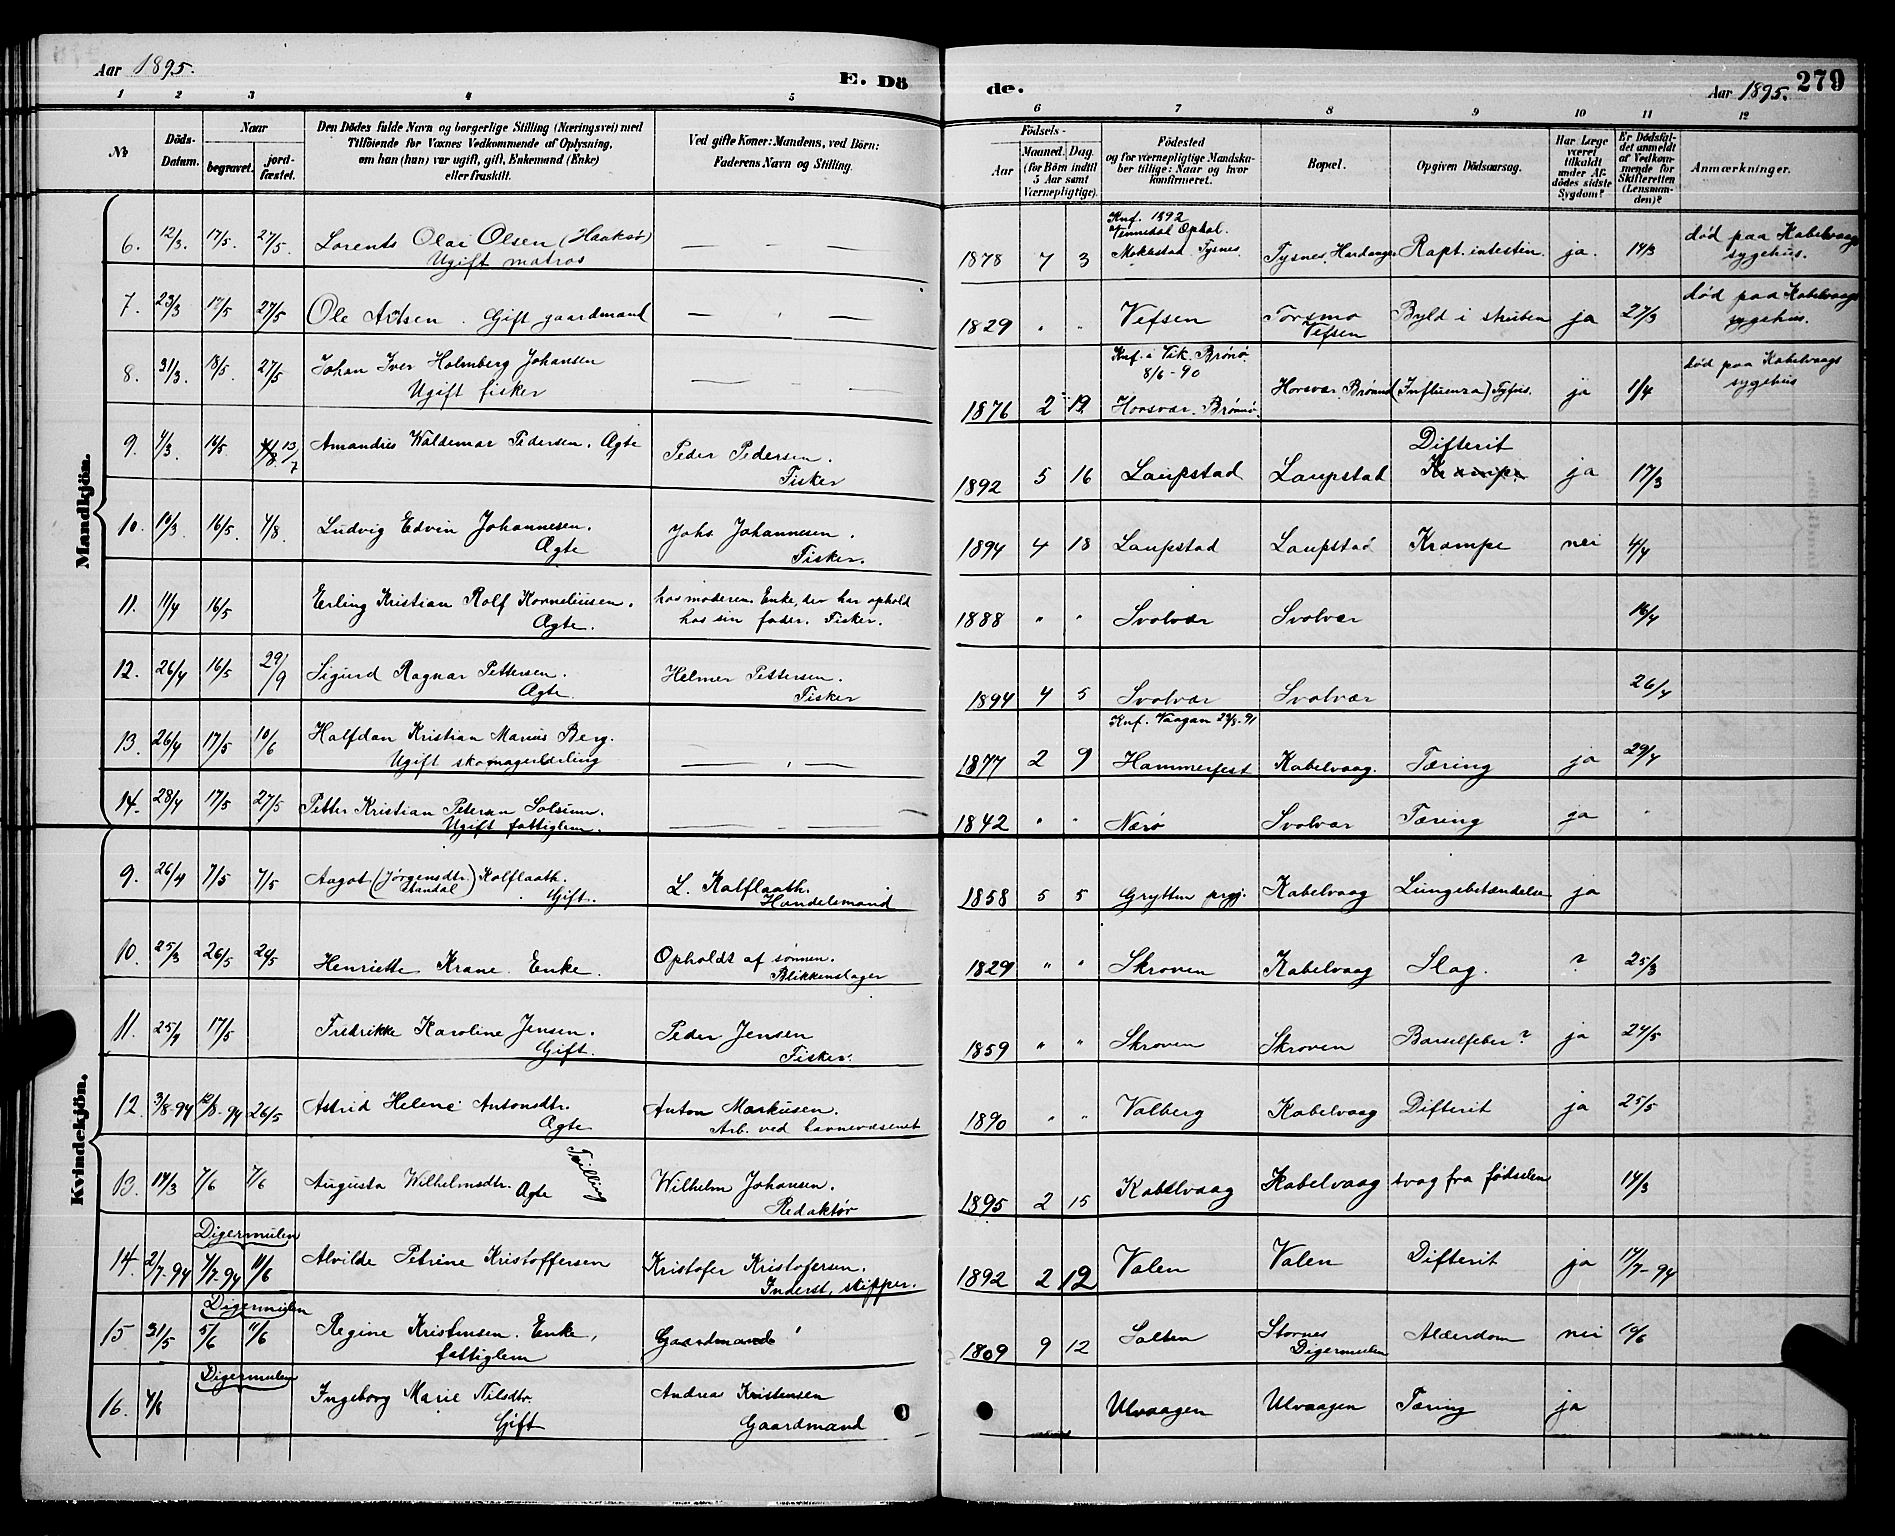 Aar 1895.
E. Dö
1 2 3 4 5
№
Döds-
Datum.
Naar
begravet.
jord-
fæstet.
Den Dödes fulde Navn og borgerlige Stilling (Næringsvei) med
Tilföiende for Voxnes Vedkommende af Oplysning,
om han (hun) var ugift, gift, Enkemand (Enke)
eller fraskilt.
Ved gifte Koner: Mandens, ved Börn:
Faderens Navn og Stilling.
Mandkjön.
6. 12/3. 17/5. 27/5. Lorents Olai Olsen (Haaksø)
Ugift matros
7. 23/3 17/5 27/5 Ole Gift gaardmand
8. 31/3. 18/5. 27/5 Johan Iver Holmberg Johansen
Ugift fisker
9. 4/3. 16/5. 13/7 Amandus Waldemar Pedersen. Ægte Peder Pedersen.
Fisker
10. 10/3 16/5. 4/8. Ludvig Edvin Johannesen. Johs Johannesen.
Ægte Fisker.
11. 11/4 16/5 Erling Kristian Rolf Korneliusen. hos moderen Enke, der har ophold
Ægte. hos sin fader. Fisker.
12. 26/4 16/5 29/9 Sigurd Ragnar Pettersen. Helmer Pettersen.
Ægte Fisker
13. 26/4 17/5 10/6 Halfdan Kristian Marius Berg.
Ugift skomagerlærling
14. 28/4 17/5 27/5 Petter Kristian Petersen Solsum.
Ugift fattiglem.
Kvindekjön.
9. 26/4 7/5 7/5 Aagot (Jørgensdtr. Kolflaath. L. Kolflaath.
Gift. Handelsmand
10. 25/3 26/5 24/5 Henriette Krane. Enke. Opholdt af sønnen.
Blikkenslager
11. 17/5 Fredrikke Karoline Jensen. Peder Jensen
Gift. Fisker.
12. 3/8-94 12/8-94 26/5 Astrid Helene Antonsdtr. Anton Markusen.
Ægte Arb. ved havnevæsenet
13. 14/3 7/6 7/6 Augusta Wilhelmsdtr. Ægte Tvilling Wilhelm Johansen.
Redaktør
Digermulen
14. 2/7-94 4/7-94 11/6 Alvilde Petrine Kristoffersen Kristofer Kristofersen.
Inderst, skipper.
Digermulen
15 31/5 5/6 11/6 Regine Kristensen. Enke, Gaardmand
fattiglem
Digermulen
16. 4/6 Ingeborg Marie Nilsdtr. Andreas Kristensen
Gift Gaardmand
de.
Aar 1895. 279
6 7 8 9 10 11 12
Födsels-
Aar
Maaned. Dag.
(for Börn indtil
5 Aar samt
Værnepligtige).
Födested
og for værnepligtige Mandska-
ber tillige: Naar og hvor
konfirmeret.
Bopæl.
Opgiven Dödsaarsag.
Har Læge
været
tilkaldt
under Af-
dödes sidste
Sygdom?
Er Dödsfal-
det anmeldt
af Vedkom-
mende for
Skifteretten
(Lensman-
den)?
Anmærkninger.
Knf. 1892
død paa Kabelvaags
1878 7 3 Tysnes. Tysnes. Hardanger Rupt. intestin. ja. 14/3 sygehus.
død paa Kabelvaags
1829 " " Vefsen Forsmo Byld i struben ja 27/3 sygehus.
Vefsen
Knf. i Vik. Brønø. død paa Kabelvaags
8/6-90 sygehus
1876 2 19 Horsvær. Brønø. Horsvær. Brønø (Influenza) Tyfus. ja 1/4
Difterit
1892 5 16 Laupstad Laupstad Krampe ja 17/3
1894 4 18 Laupstad Laupstad Krampe nei 4/4
1888 " " Svolvær Svolvær 16/4
1894 4 5 Svolvær Svolvær 26/4
Knf. Vaagan
1877 2 9 Hammerfest Kabelvaag. Tæring ja 29/4
1842 " " Nærø Svolvær Tæring ja
1858 5 5 Grytten prgj. Kabelvaag Lungebetændelse ja
1829 " " Skroven Kabelvaag Slag. ? 25/3
1859 " " Skroven Skroven Barselfeber? ja 24/5
1890 " " Valberg Kabelvaag Difterit ja 25/5
1895 2 15 Kabelvaag Kabelvaag svag fra fødselen 14/3
1892 2 12 Valen Valen Difterit ja 14/7-94
1809 9 12 Salten Stornes Alderdom nei 10/6
Digermulen
Ulvaagen Ulvaagen Tæring ja